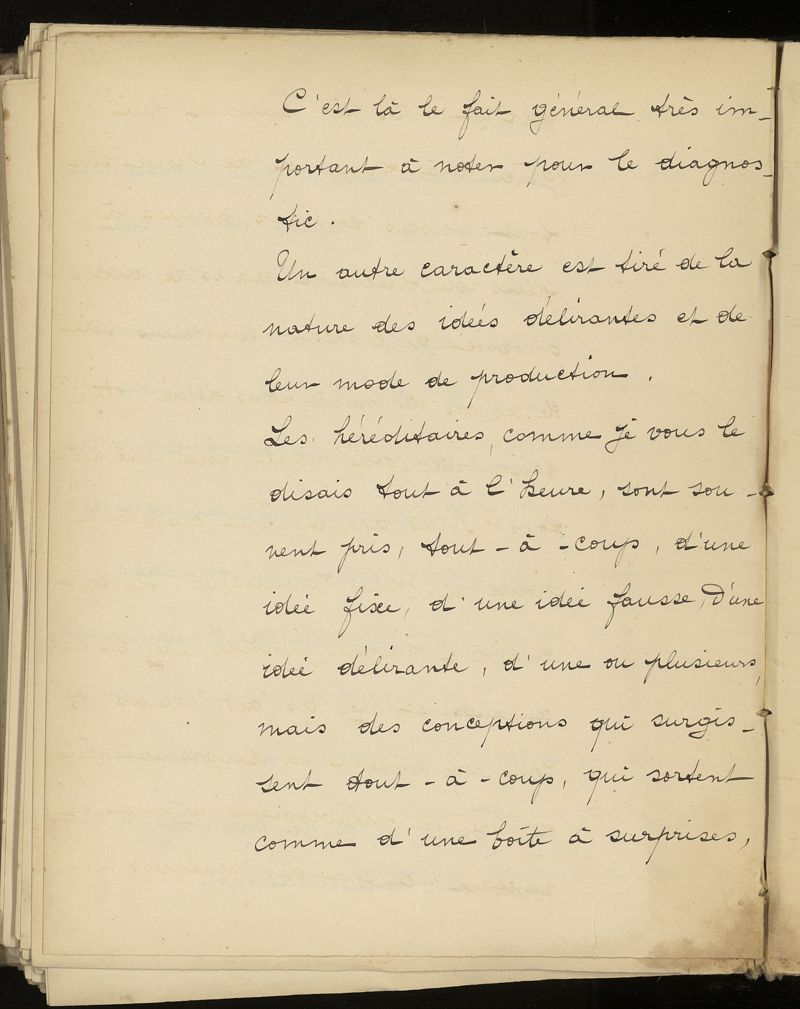 C'est là le fait général très im-
portant à noter pour le diagnos-
tic.
Un autre caractère est tiré de la
nature des idées délirantes et de
leur mode de production.
Les héréditaires, comme je vous le
disais tout à l'heure, sont sou-
vent pris, tout-à-coup, d'une
idée fixe, d'une idée fausse, d'une
idée délirante, d'une ou plusieurs,
mais des conceptions qui surgis-
sent tout-à-coup, qui sortent
comme d'une boîte à surprises,